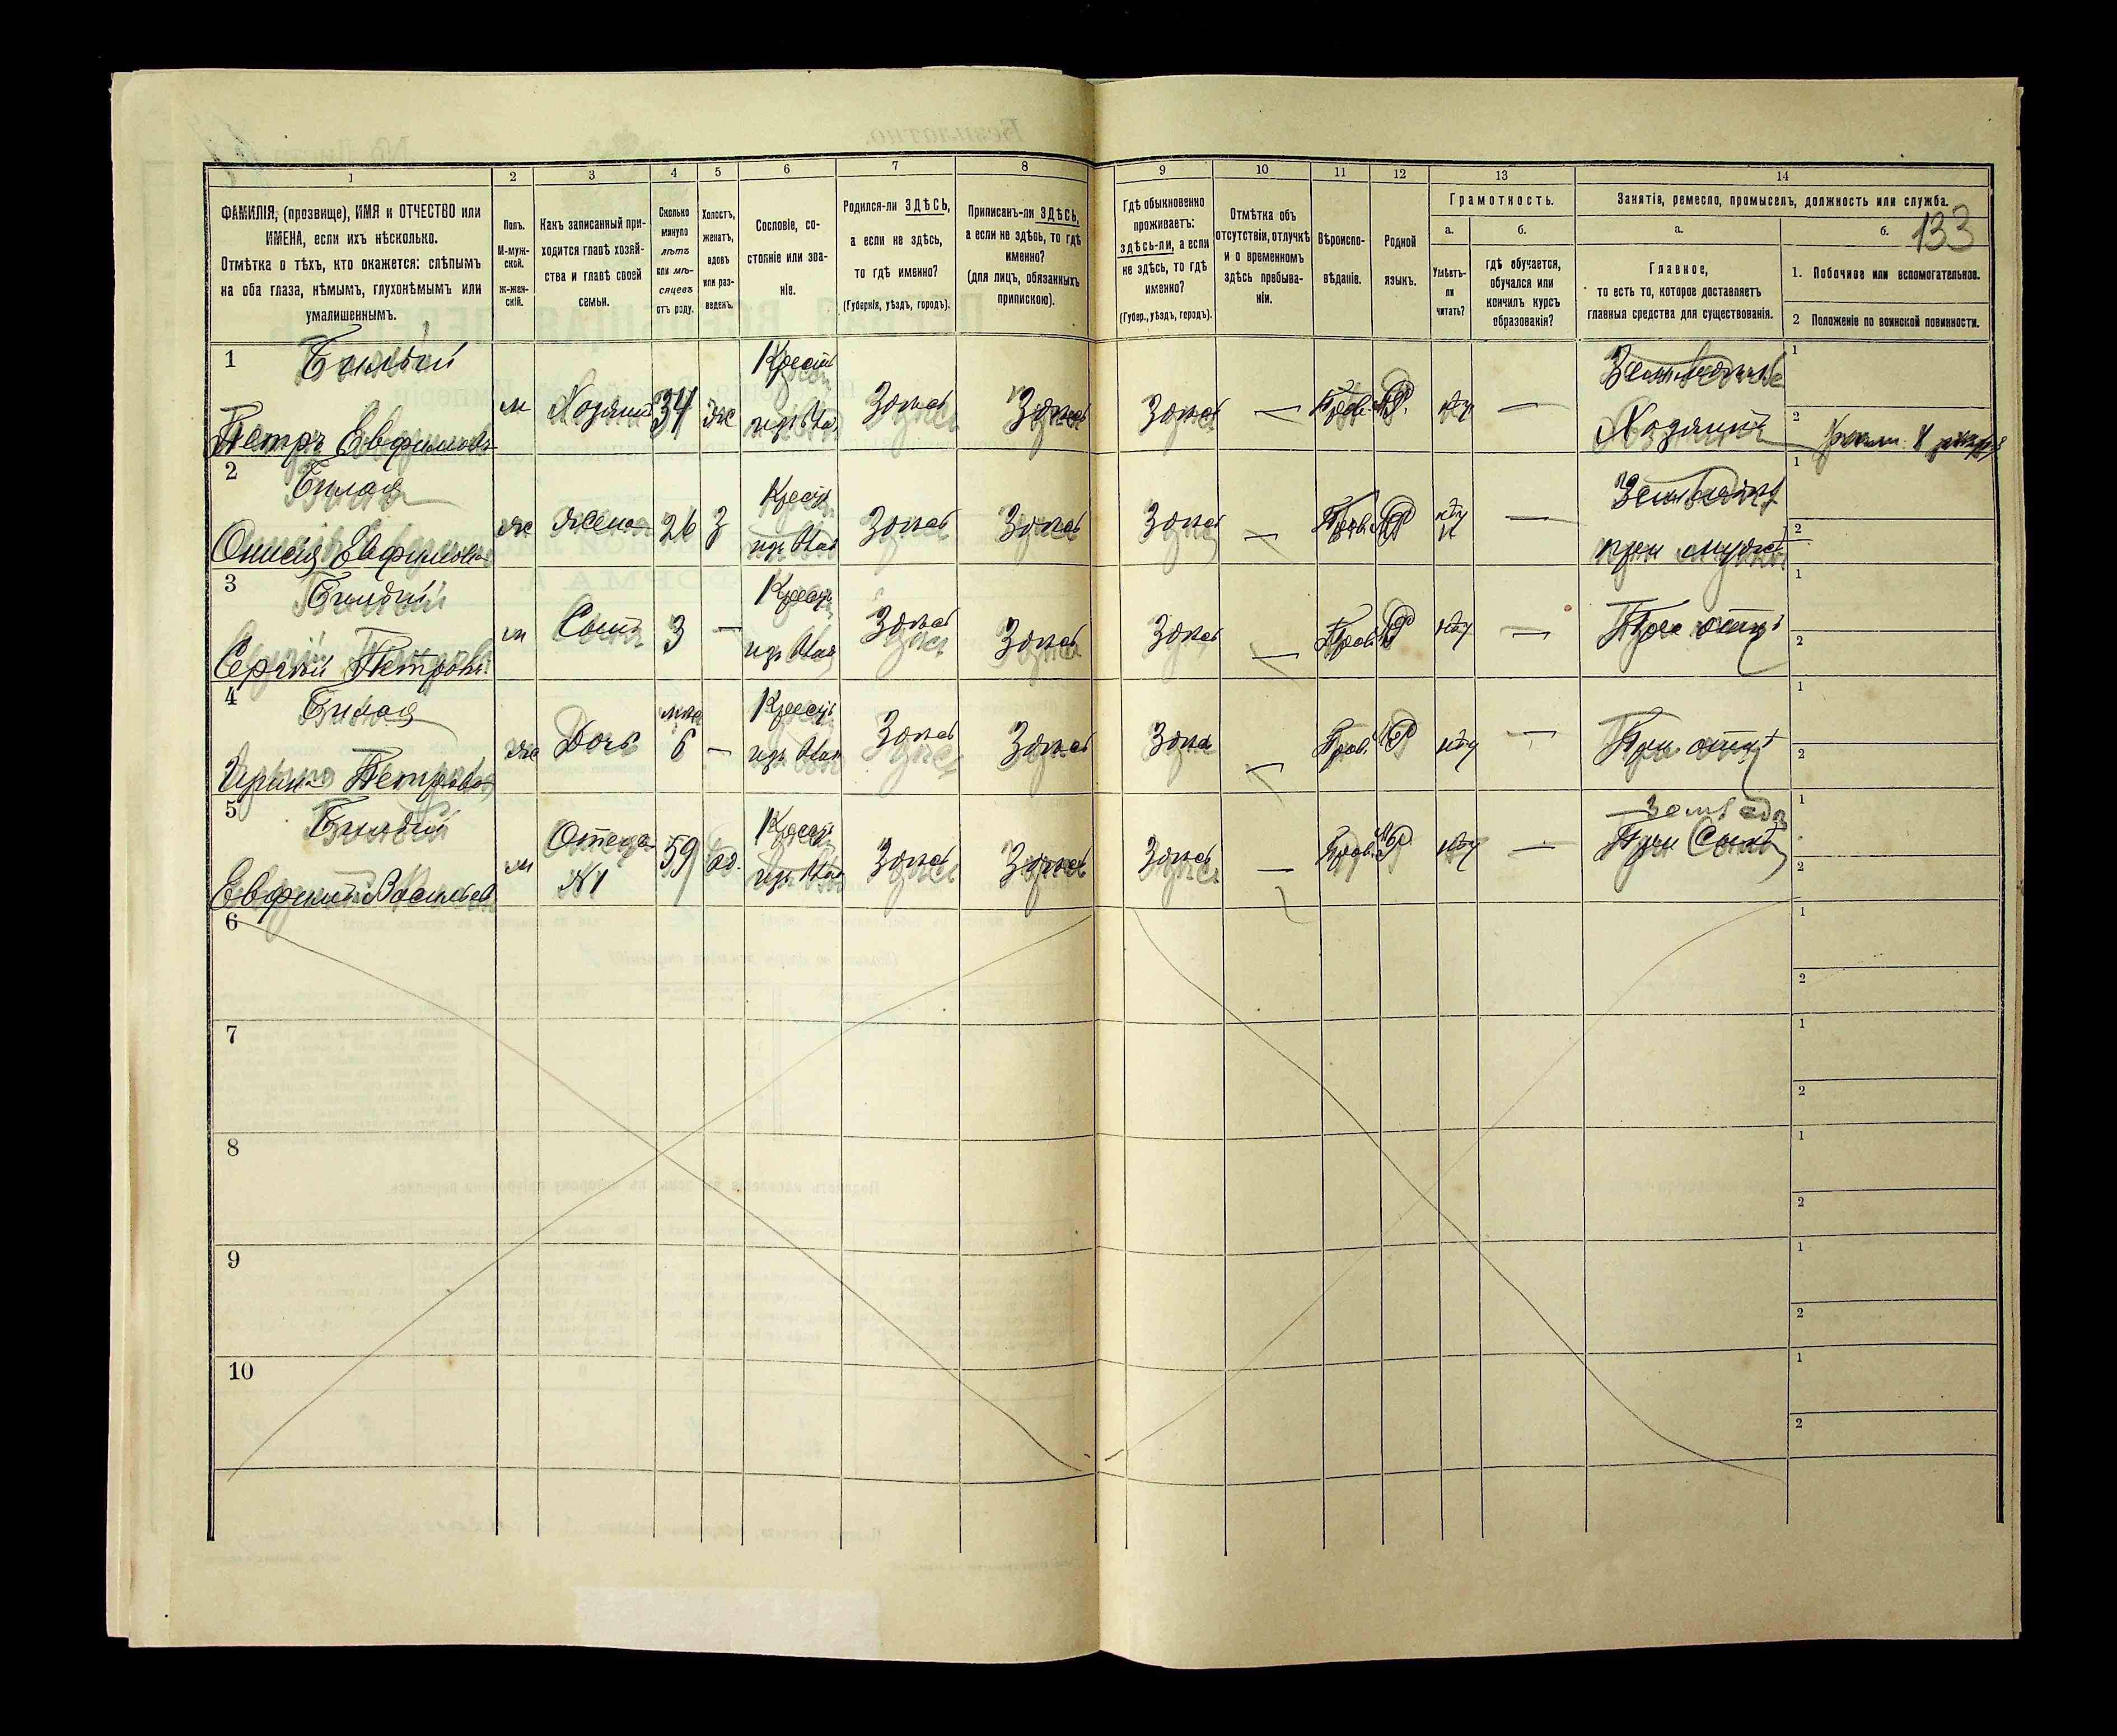 133
1
2
3
4
5
6
7
8
9
10
11
12
13
14
ФАМИЛІЯ, (прозвище), ИМЯ и ОТЧЕСТВО или
ИМЕНА, если ихъ нѣсколько.
Отмѣтка о тѣхъ, кто окажется: слѣпымъ
на оба глаза, нѣмымъ, глухонѣмымъ или
умалишеннымъ.
Полъ.
М-муж-
ской.
ж-жен-
скій.
Какъ записанный при-
ходится главѣ хозяй-
ства и главѣ своей
семьи.
Сколько
минуло
лѣтъ
или мѣ-
сяцевъ
отъ роду.
Холостъ,
женатъ,
вдовъ
или раз-
веденъ.
Сословіе, со-
стояніе или зва-
ніе.
Родился-ли ЗДѢСЬ,
а если не здѣсь,
то гдѣ именно?
(Губернія, уѣздъ, городъ).
Приписанъ-ли ЗДѢСЬ,
а если не здѣсь, то гдѣ
именно?
(для лицъ, обязанныхъ
припискою).
Гдѣ обыкновенно
проживаетъ:
здѣсь-ли, а если
не здѣсь, то гдѣ
именно?
(Губер., уѣздъ, городъ).
Отмѣтка объ
отсутствіи, отлучкѣ
и о временномъ
здѣсь пребыва-
ніи.
Вѣроиспо-
вѣданіе.
Родной
языкъ.
Грамотность.
а.
Умѣетъ-
ли
читать?
б.
гдѣ обучается,
обучался или
кончилъ курсъ
образованія?
Занятія, ремесло, промыселъ, должность или служба.
а.
Главное,
то есть то, которое доставляетъ
главныя средства для существованія.
б.
1. Побочное или вспомогательное.
2 Положеніе по воинской повинности.
1
Билый
Петръ Евфимовъ
м
Хозяинъ
34
же
Крест
Здѣсь
Здѣсь
Здѣсь
—
Прав.
нѣт
—
Хозяинъ
1
2
2
Билая
Евфимова
же
жена
26
З
Крест
Здѣсь
Здѣсь
Здѣсь
—
Прав.
нѣт
—
при мужѣ
1
2
3
Билый
Сергѣй Петровъ
м
Сынъ
3
—
Крест
Здѣсь
Здѣсь
Здѣсь
—
Прав.
нѣт
—
При отцѣ
1
2
4
Билая
Ирина Петрова
же
Дочь
6
—
Крест
Здѣсь
Здѣсь
Здѣсь
—
Прав.
нѣт
—
При отцѣ
1
2
5
Билый
Евфимій Васильев
м
Отецъ
№1
59
вд.
Крест
Здѣсь
Здѣсь
Здѣсь
—
Прав.
нѣт
—
При Сынѣ
1
2
6
1
2
7
1
2
8
1
2
9
1
2
10
1
2